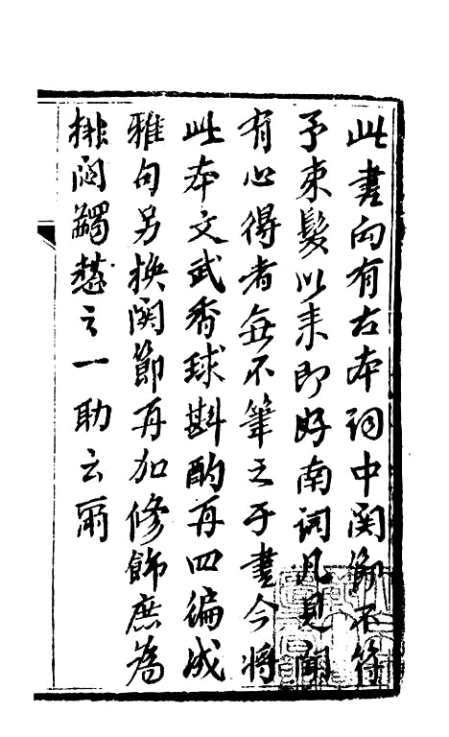 此書向有古本詞中関節不符
予束髮以来即好南詞凡見聞
有心得者每不筆之于書今將
此本文武香球斟酌再四编成
雅句另换関節再加修飾庶為
排悶蠲愁之一助云爾